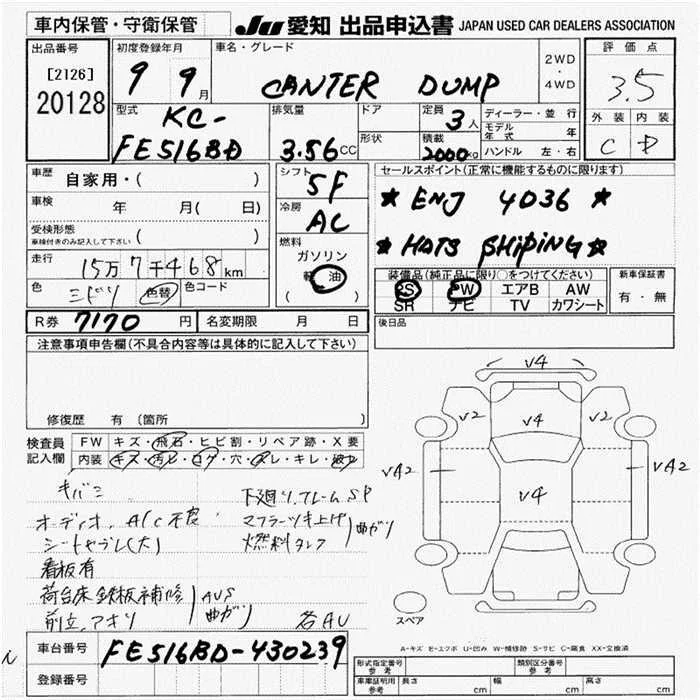 車内保管・守衛保管
JU 愛知 出品申込書 JAPAN USED CAR DEALERS ASSOCIATION
出品番号
[2126]
20128
初度登録年月
9 9月
車名・グレード
CANTER DUMP
2WD
・
4WD
評価点
3.5
外装 内装
C D
型式
KC-
FE516BD
排気量
3.56cc
ドア
形状
定員
3人
積載
2000kg
ディーラー・並行
モデル年式 年
ハンドル 左・右
車歴
自家用・( )
車検
年 月( 日)
受検形態
車検付きのみ記入して下さい ( )
走行
15万7千468km
色
ミドリ 色替 色コード
シフト
5F
冷房
AC
燃料
ガソリン
軽油
( )
セールスポイント(正常に機能するものに限ります)
★ ENJ 4036 ★
★ HOTS SHiPING ★
装備品(純正品に限り○をつけてください)
PS PW エアB AW
SR ナビ TV カワシート
新車保証書
有・無
R券 7170円 名変期限 月 日
後日品
注意事項申告欄(不具合内容等は具体的に記入して下さい)
修復歴 有 (箇所 )
検査員記入欄
FW キズ・飛石・ヒビ割・リペア跡・X要
内装 キズ・汚レ・コゲ・穴・スレ・キレ・破レ
キバミ
オーディオ、A/C不良
シートヤブレ(大)
看板有
荷台床鉄板補修
前立、アオリ
AUS
曲ガリ
下廻り、フレームSP
マフラーツキ上げ
燃料タンク
曲ガリ
各AU
V4
V2 V4 V2
VA2 V4 VA2
スペア
A-キズ E-エクボ U-凹み W-補修跡 S-サビ C-腐食 XX-交換済
車台番号 FE516BD-430239
登録番号
形式指定番号 参考
類別区分番号 参考
車庫証明用 参考
長さ cm 幅 cm 高さ cm